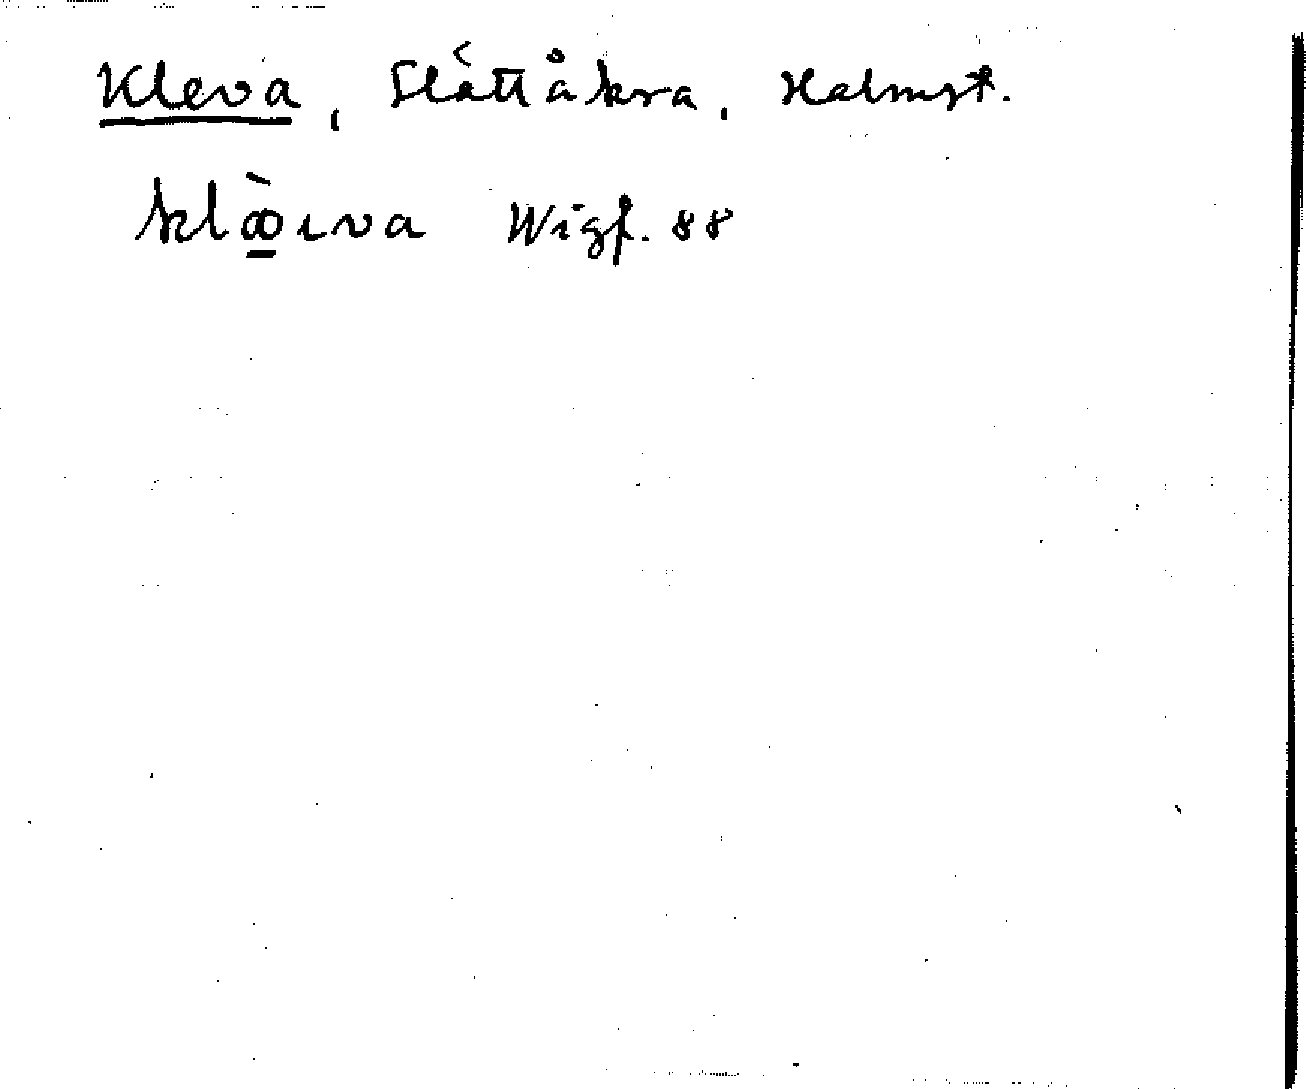 Kleva, Slättåkra, Halmst.
klæ̱̀ıva Wigf. 88